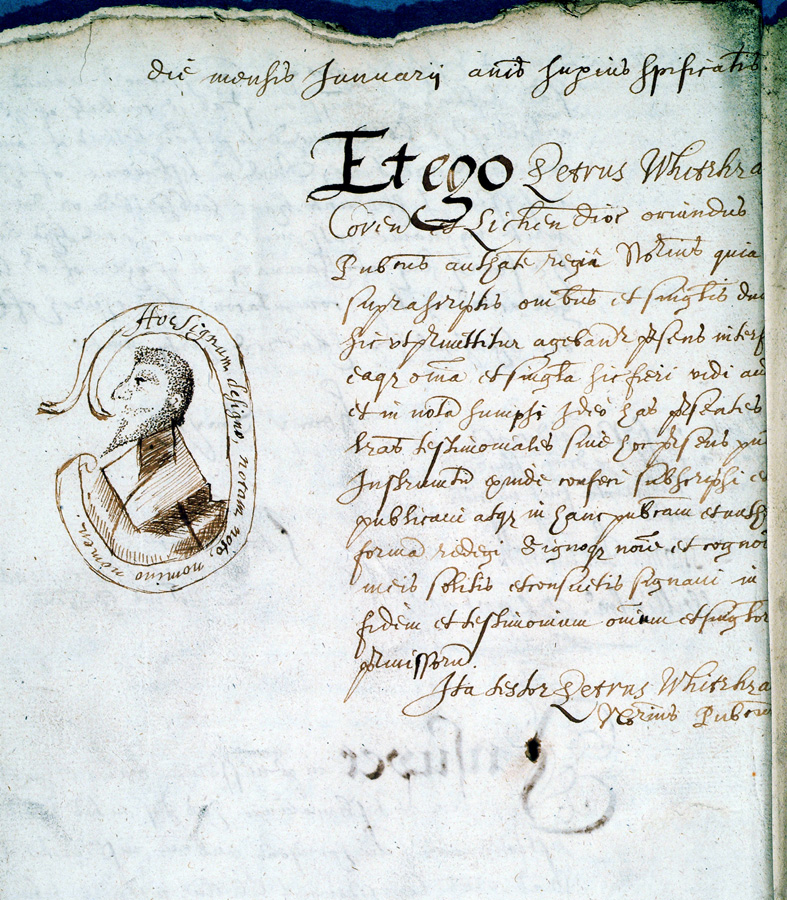 die mensis Januarii annis supius spificatis
Et ego Petrus Whitehea
Coven et Lichen dioc oriundus
Pubcus authate regia Notrius quia
suprascriptis omibus et singlis du
sic ut prmittitur agebantr psens interf
eaqr omia et singla sic fieri vidi au
et in nota sumpsi Ideo has psentes
lras testimoniales sive hoc psens pu
Instrumtu exinde confeci subscripsi et
publicavi atqr in hanc pubcam et auth
forma redegi Signoqr noie et cogno
meis solitis et consuetis signavi in
fidem et testimonium omium et singlor
prmissoru.
Ita testor Petrus Whitehea
Notrius Pubcus
Hoc signum designo, notam noto, nomino nomen.